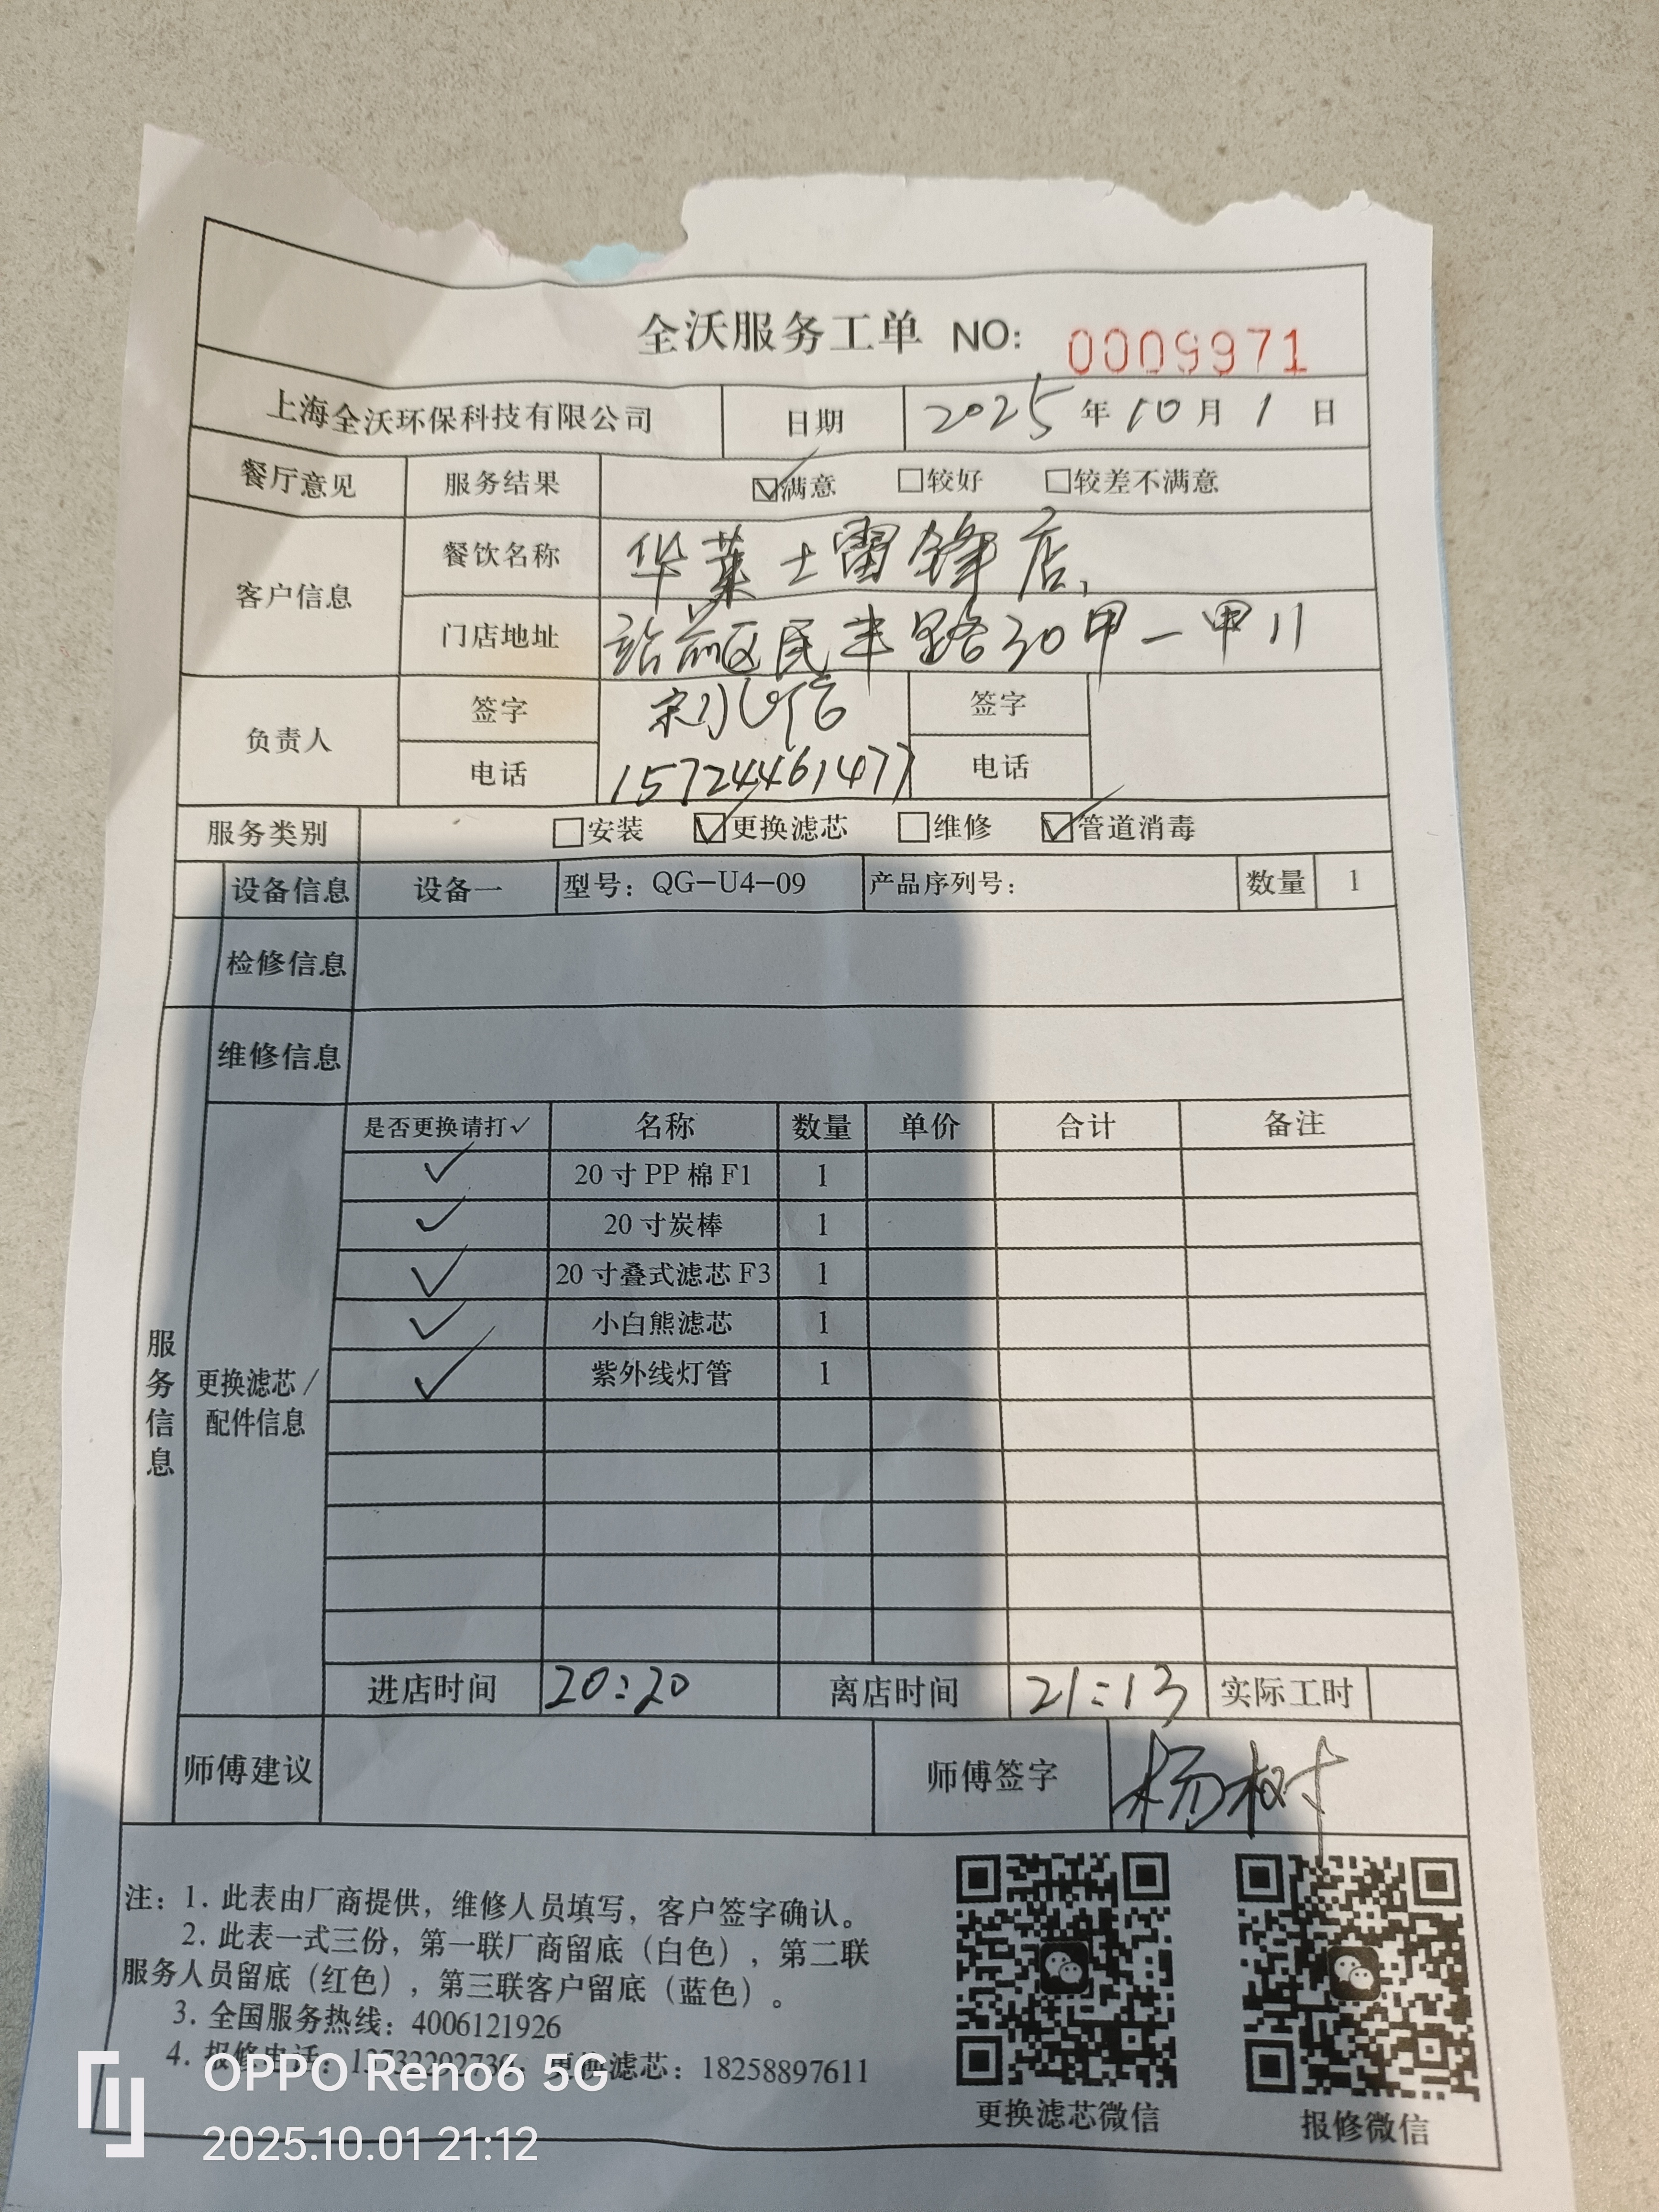 全沃服务工单 NO: 0009971
上海全沃环保科技有限公司 日期 2025年10月1日
餐厅意见 服务结果 ☑满意 □较好 □较差不满意
客户信息 餐饮名称 华莱士雷锋店
门店地址 站前区民丰路30甲一甲11
负责人 签字 签字
电话 15724461477 电话
服务类别 □安装 ☑更换滤芯 □维修 ☑管道消毒
设备信息 设备一 型号：QG-U4-09 产品序列号： 数量 1
检修信息
维修信息
服务信息
更换滤芯/配件信息
是否更换请打✓ 名称 数量 单价 合计 备注
✓ 20寸PP棉F1 1
✓ 20寸炭棒 1
✓ 20寸叠式滤芯F3 1
✓ 小白熊滤芯 1
✓ 紫外线灯管 1
进店时间 20:20 离店时间 21:13 实际工时
师傅建议 师傅签字 杨树
注：1. 此表由厂商提供，维修人员填写，客户签字确认。
2. 此表一式三份，第一联厂商留底（白色），第二联
服务人员留底（红色），第三联客户留底（蓝色）。
3. 全国服务热线：4006121926
4. 报修电话： 更换滤芯：18258897611
更换滤芯微信 报修微信
OPPO Reno6 5G
2025.10.01 21:12